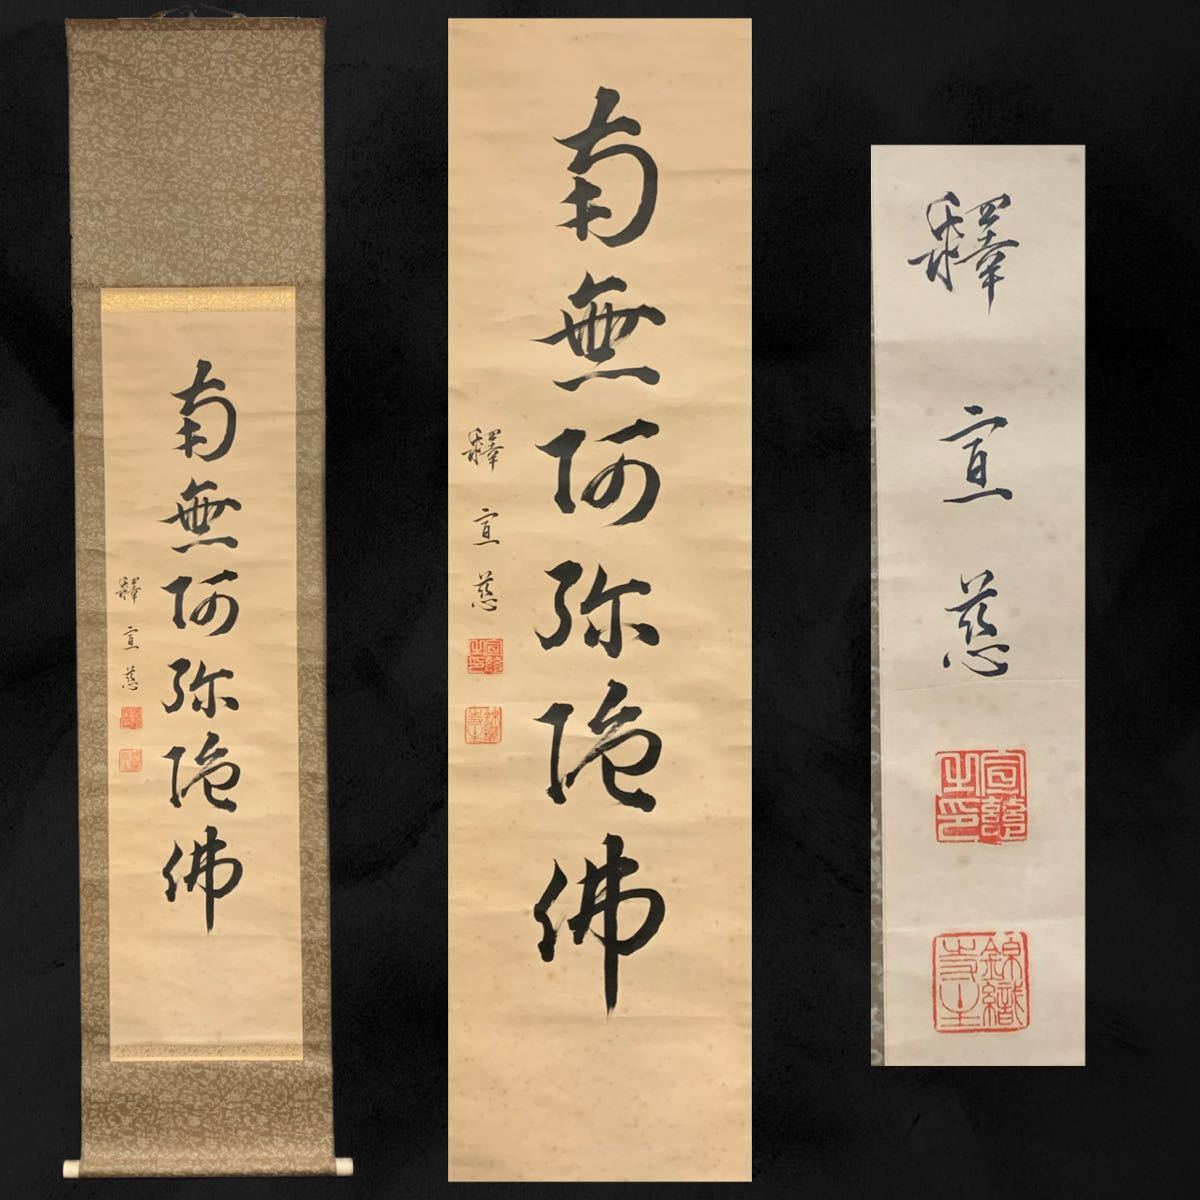 南無阿弥陀佛
釋宣慈
南無阿弥陀佛
釋宣慈
釋宣慈
錦織寺主